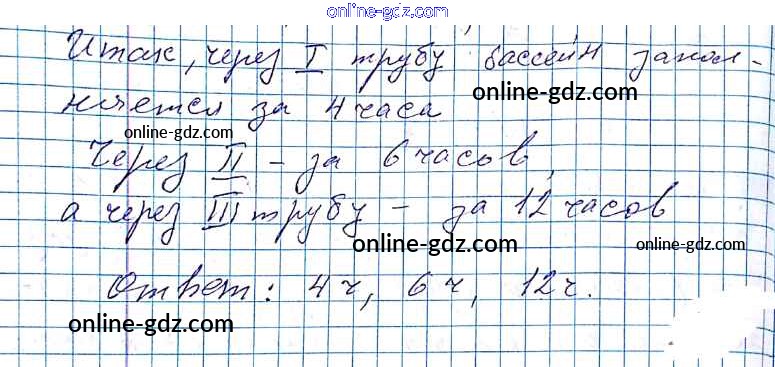 online-gdz.com
Итак, через I трубу бассейн запол-
няется за 4 часа
online-gdz.com
online-gdz.com
Через II - за 6 часов,
online-gdz.com
а через III трубу - за 12 часов
online-gdz.com
online-gdz.com
Ответ: 4 ч, 6 ч, 12 ч.
online-gdz.com